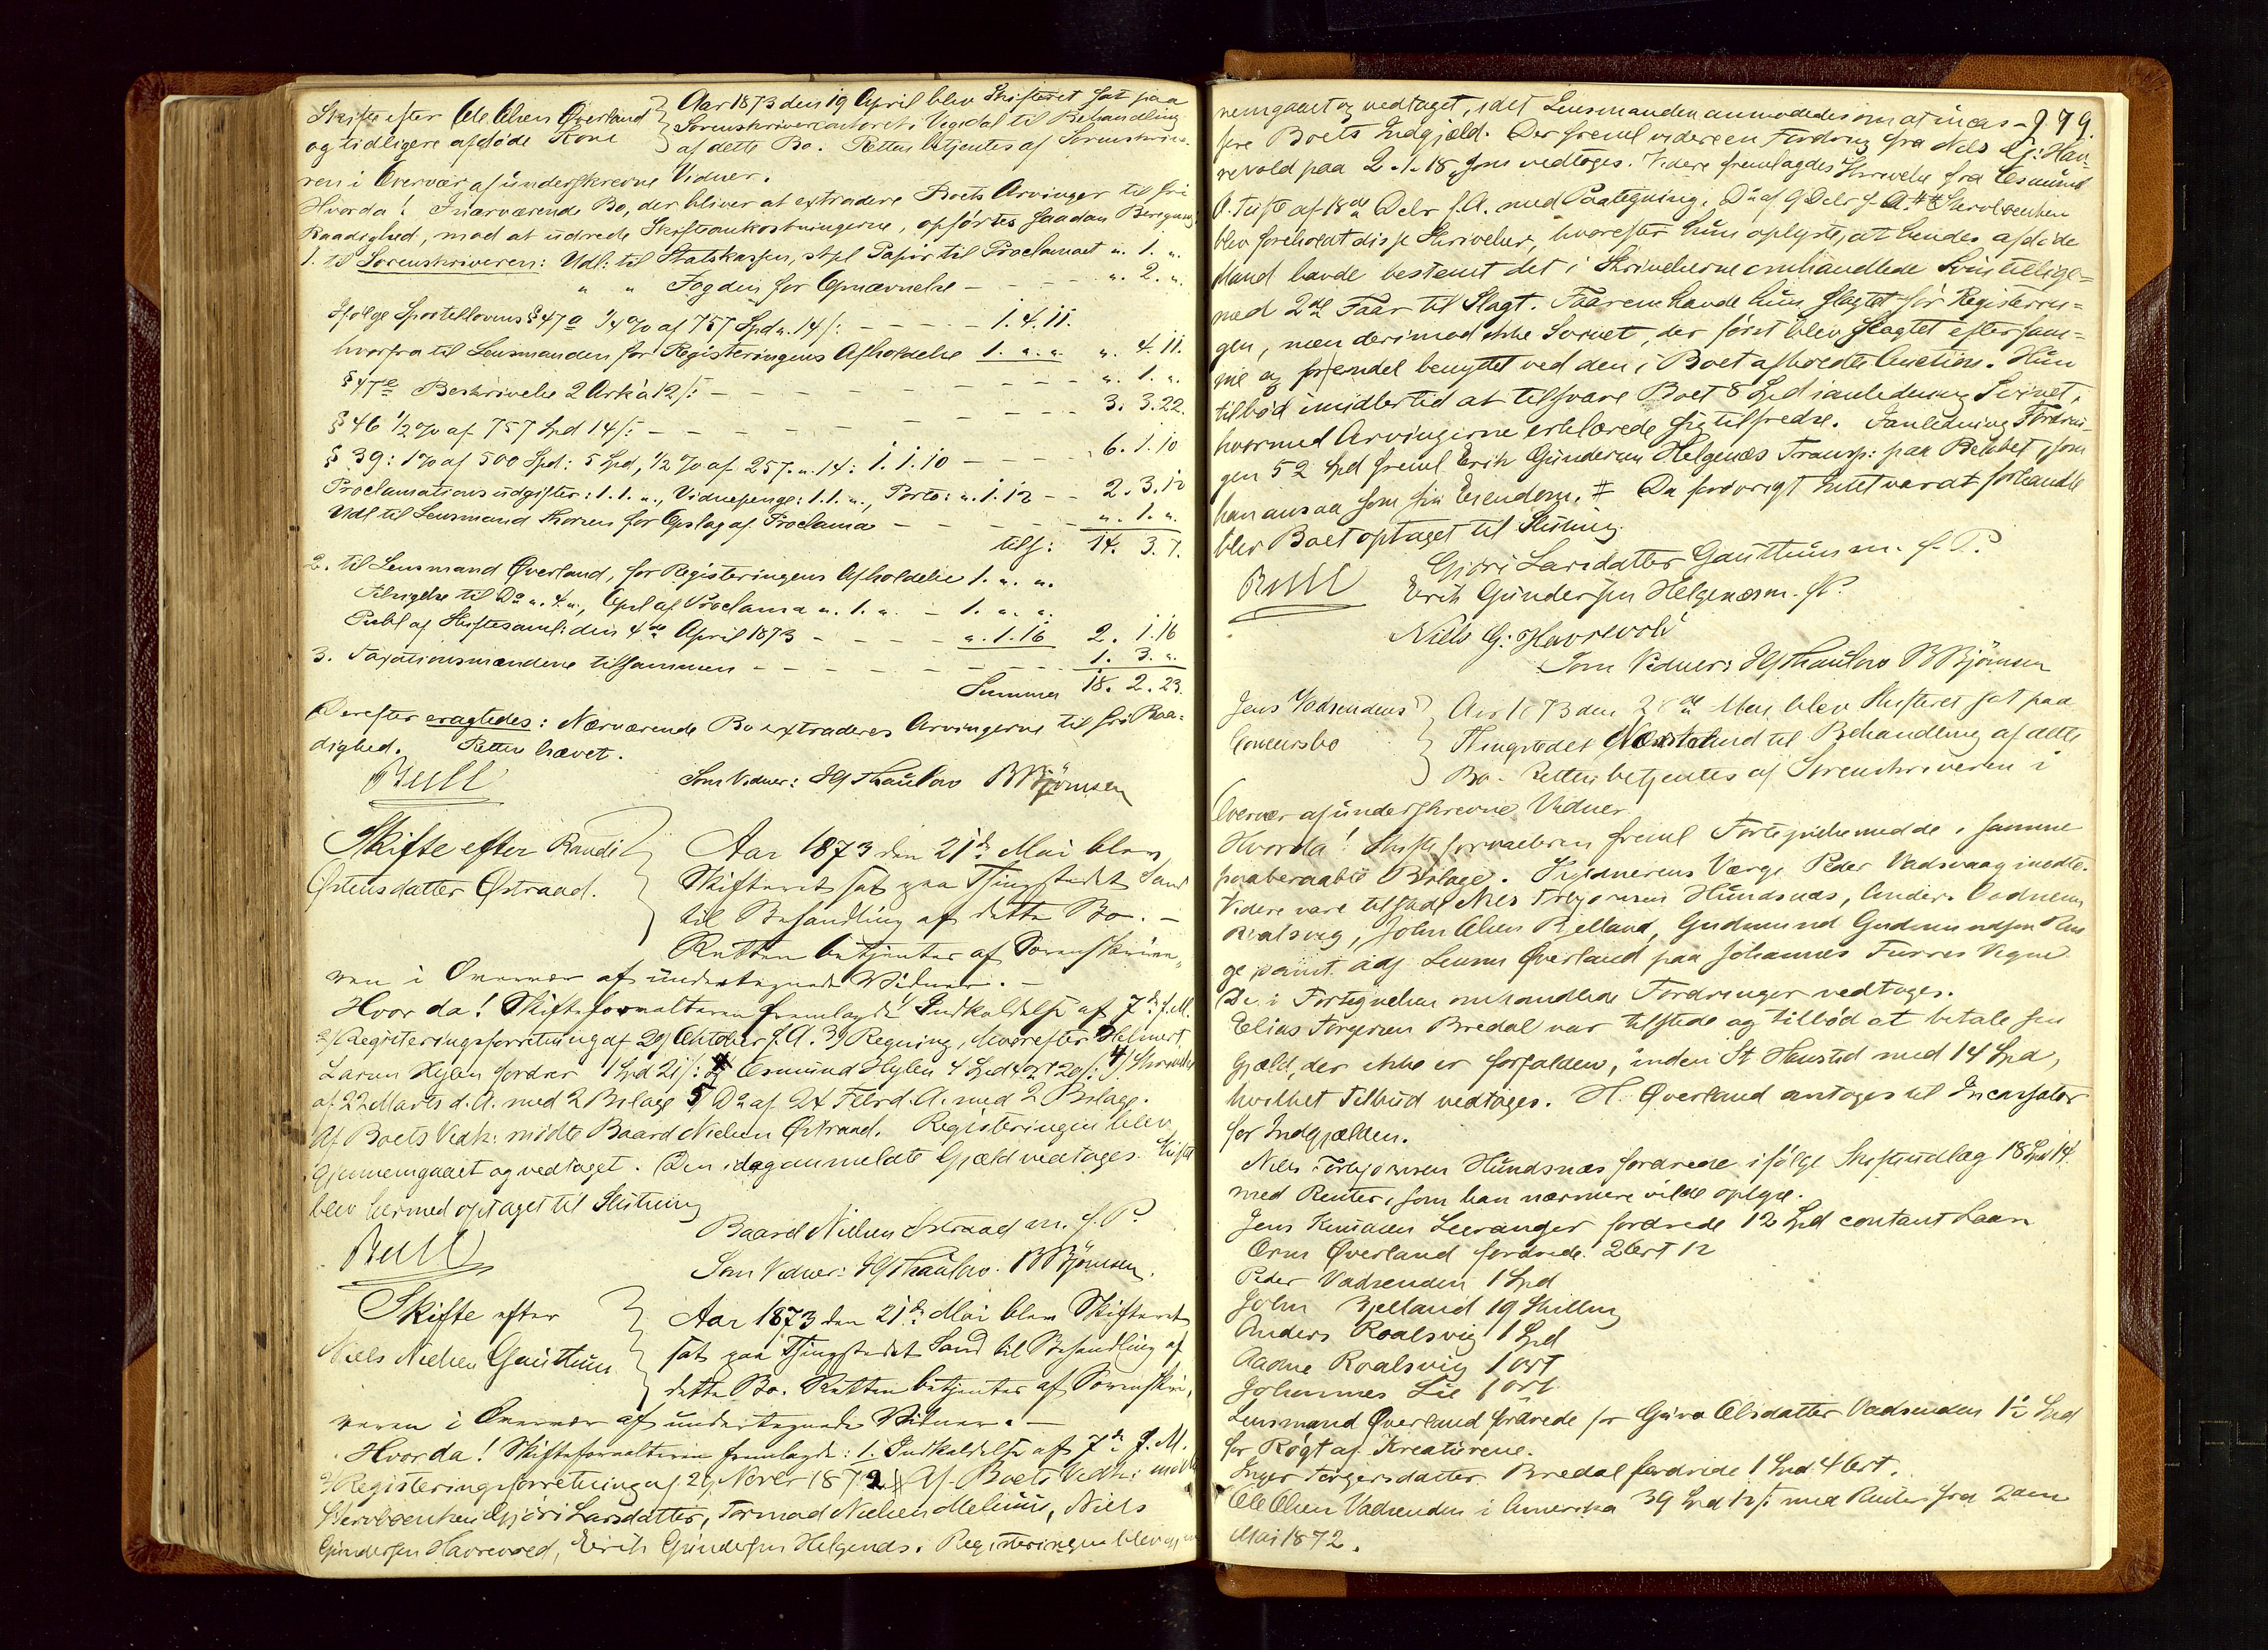 Skifte efter Ole Olsen Øverland
og tidligere afdøde Kone
Aar 1873 den 19 April blev Skifteret sat paa
Sorenskrivercontoret i Vigedal til Behandling
af dette Bo. Retten betjentes af Sorenskrive-
ren i Overvær af underskrevne Vidner.
Hvorda! I nærværende Bo, der bliver at extradere Boets Arvinger til fri
Raadighed, mod at udrede Skifteomkostningerne, opførtes saadan Beregning
1. til Sorenskriveren: Udl: til Statskassen, stpl Papir til Proclamaet „. 1. „.
„ „ Fogden for Opnævnelse - - - - „. 2. „.
Ifølge Sportellovens § 47a 1/4 % af 757 Spd „. 14 /: - - - - 1. 4. 11.
hvorfra til Lensmanden for Registeringens Afholdelse 1. „. „. „. 4. 11.
§ 47e Beskrivelse 2 Ark à 12 /: - - - - „. 1. „.
§ 46 1/2 % af 757 Spd 14 /: - - - - 3. 3. 22.
§ 39: 1 % af 500 Spd: 5 Spd, 1/2 % af 257. „. 14: 1. 1. 10 - - 6. 1. 10
Proclamationsudgifter: 1. 1. „., Vidnepenge: 1. 1. „., Porto: „. 1. 12 - - 2. 3. 12
Udl til Lensmand Thorsen for Opslag af Proclama - - - - „. 1. „.
tils: 14. 3. 7.
2. til Lensmand Øverland, for Registeringens Afholdelse 1. „. „.
Tilsigelse til Do „. 4. „., Opsl af Proclama „. 1. „. - 1. „. „.
Publ af Skiftesaml: den 4de April 1873 - - - - „. 1. 16 2. 1. 16
3. Taxationsmændene tilsammen - - - - 1. 3. „.
Summa 18. 2. 23.
Derefter eragtedes: Nærværende Bo extraderes Arvingerne til fri Raa-
dighed. Retten hævet.
Bull Som Vidner: HG Thaulow B Bjørnsen
Skifte efter Randi
Østensdatter Østraad.
Aar 1873 den 21de Mai blev
Skifteret sat paa Thingstedet Sand
til Behandling af dette Bo. -
Retten betjentes af Sorenskrive-
ren i Overvær af undertegnede Vidner. -
Hvor da! Skifteforvalteren fremlagde 1/ Indkaldelse af 7de f. M.
2/ Registeringsforretning af 29 Oktober f. A. 3/ Regning, hvorefter Helmert
Larsen Hylen fordrer 1 Spd 21 /: Osmund Hylen 4 Spd 4 ort 20 /: 4/ Skrivelse
af 22 Marts d. A. med 2 Bilage 5/ Do af 24 Febr d. A. med 2 Bilage.
Af Boets Vedk: mødte Baard Nielsen Østraad. Registeringen blev
gjennemgaaet og vedtaget. Den idag anmeldte Gjæld vedtages. Skiftet
blev hermed optaget til Slutning
Baard Nielsen Østraad m. f. P.
Bull Som Vidner: HG Thaulow. B Bjørnsen.
Skifte efter
Niels Nielsen Gauthun
Aar 1873 den 21de Mai blev Skifteret
sat paa Thingstedet Sand til Behandling af
dette Bo. Retten betjentes af Sorenskri-
veren i Overvær af undertegnede Vidner. -
Hvor da! Skifteforvalteren fremlagde: 1. Indkaldelse af 7de f. M.
2/ Registeringsforretning af 29 Novbr 1872. Af Boets Vedk: mødte
Stervboenken Gjøri Larsdatter, Tormod Nielsen Melhuus, Niels
Gundersen Havrevold, Erik Gundersen Helgenæs. Registeringen blev gjen
279.
nemgaaet og vedtaget, idet Lensmanden anmodedes om at incas-
sere Boets Indgjæld. Der freml videre en Fordring fra Niels G: Hav-
revold paa 2. 1. 18, som vedtoges. Videre fremlagdes Skrivelse fra Osmund
O. Tufte af 18de Debr f. A. med Paategning, Do af 9 Debr f. A. Stervboenken
blev foreholdt disse Skrivelser, hvorefter hun oplyste, at hendes afdøde
Mand havde bestemt det i Skrivelserne omhandlede Sviin tillige-
med 2de Faar til Slagt. Faarene havde hun slagtet før Registerin-
gen, men derimod ikke Svinet, der først blev slagtet efter sam-
me og fordel benyttet ved den i Boet afholdte Auction. Hun
tilbød imidlertid at tilsvare Boet 8 Spd i anledning Svinet,
hvormed Arvingerne erklærede sig tilfredse. I anledning Fordrin-
gen 52 Spd freml Erik Gundersen Helgenæs Transp: paa Beløbet, som
han ansaa som sin Eiendom. # Da forøvrigt Intet var at forhandle
blev Boet optaget til Slutning.
Gjøri Larsdatter Gauthun m. f. P.
Bull Erik Gundersen Helgenæs m. f. P.
Niels G: Havrevold
Som Vidner: HG Thaulow B Bjørnsen
Jens Vadsendens
Concursbo
Aar 1873 den 28de Mai blev Skifteret sat paa
Thingstedet Næsteland til Behandling af dette
Bo. Retten betjentes af Sorenskriveren i
Overvær af underskrevne Vidner
Hvorda! Skifteforvalteren freml Fortegnelse med de i samme
paaberaabte Bilage. Skyldnerens Værge Peder Vadsvaag mødte.
Videre vare tilstede Niels Torbjørnsen Hundsnæs, Anders Aadnesen
Roalsvig, John Olsen Bjelland, Gudmund Gudmundsen
samt ad Lensm Øverland paa Johannes Furres Vegne
De i Fortegnelsen omhandlede Fordringer vedtoges.
Elias Torgersen Bredal var tilstede og tilbød at betale sin
Gjæld, der ikke er forfalden, inden St Hanstid med 14 Spd,
hvilket Tilbud vedtoges. H. Øverland antoges til Incassator
for Indgjælden.
Niels Torbjørnsen Hundsnæs fordrede ifølge Skifteudlæg 18 Spd 14
med Renter, som han nærmere vilde oplyse.
Jens Knudsen Leeranger fordrede 12 Spd contant Laan
Orm Øverland fordrede 2 Ort 12
Peder Vadsenden 1 Spd
John Bjelland 19 Skilling
Anders Roalsvig 1 Spd
Aadne Roalsvig 1 ort
Johannes Lie 1 ort
Lensmand Øverland fordrede for Guro Olsdatter Vadsenden 1½ Spd
for Røgt af Kreaturene.
Inger Torgersdatter Bredal fordrede 1 Spd 4 Ort.
Ole Olsen Vadsenden i Amerika 39 Spd 12 /: med Renter fra 2den
Mai 1872.